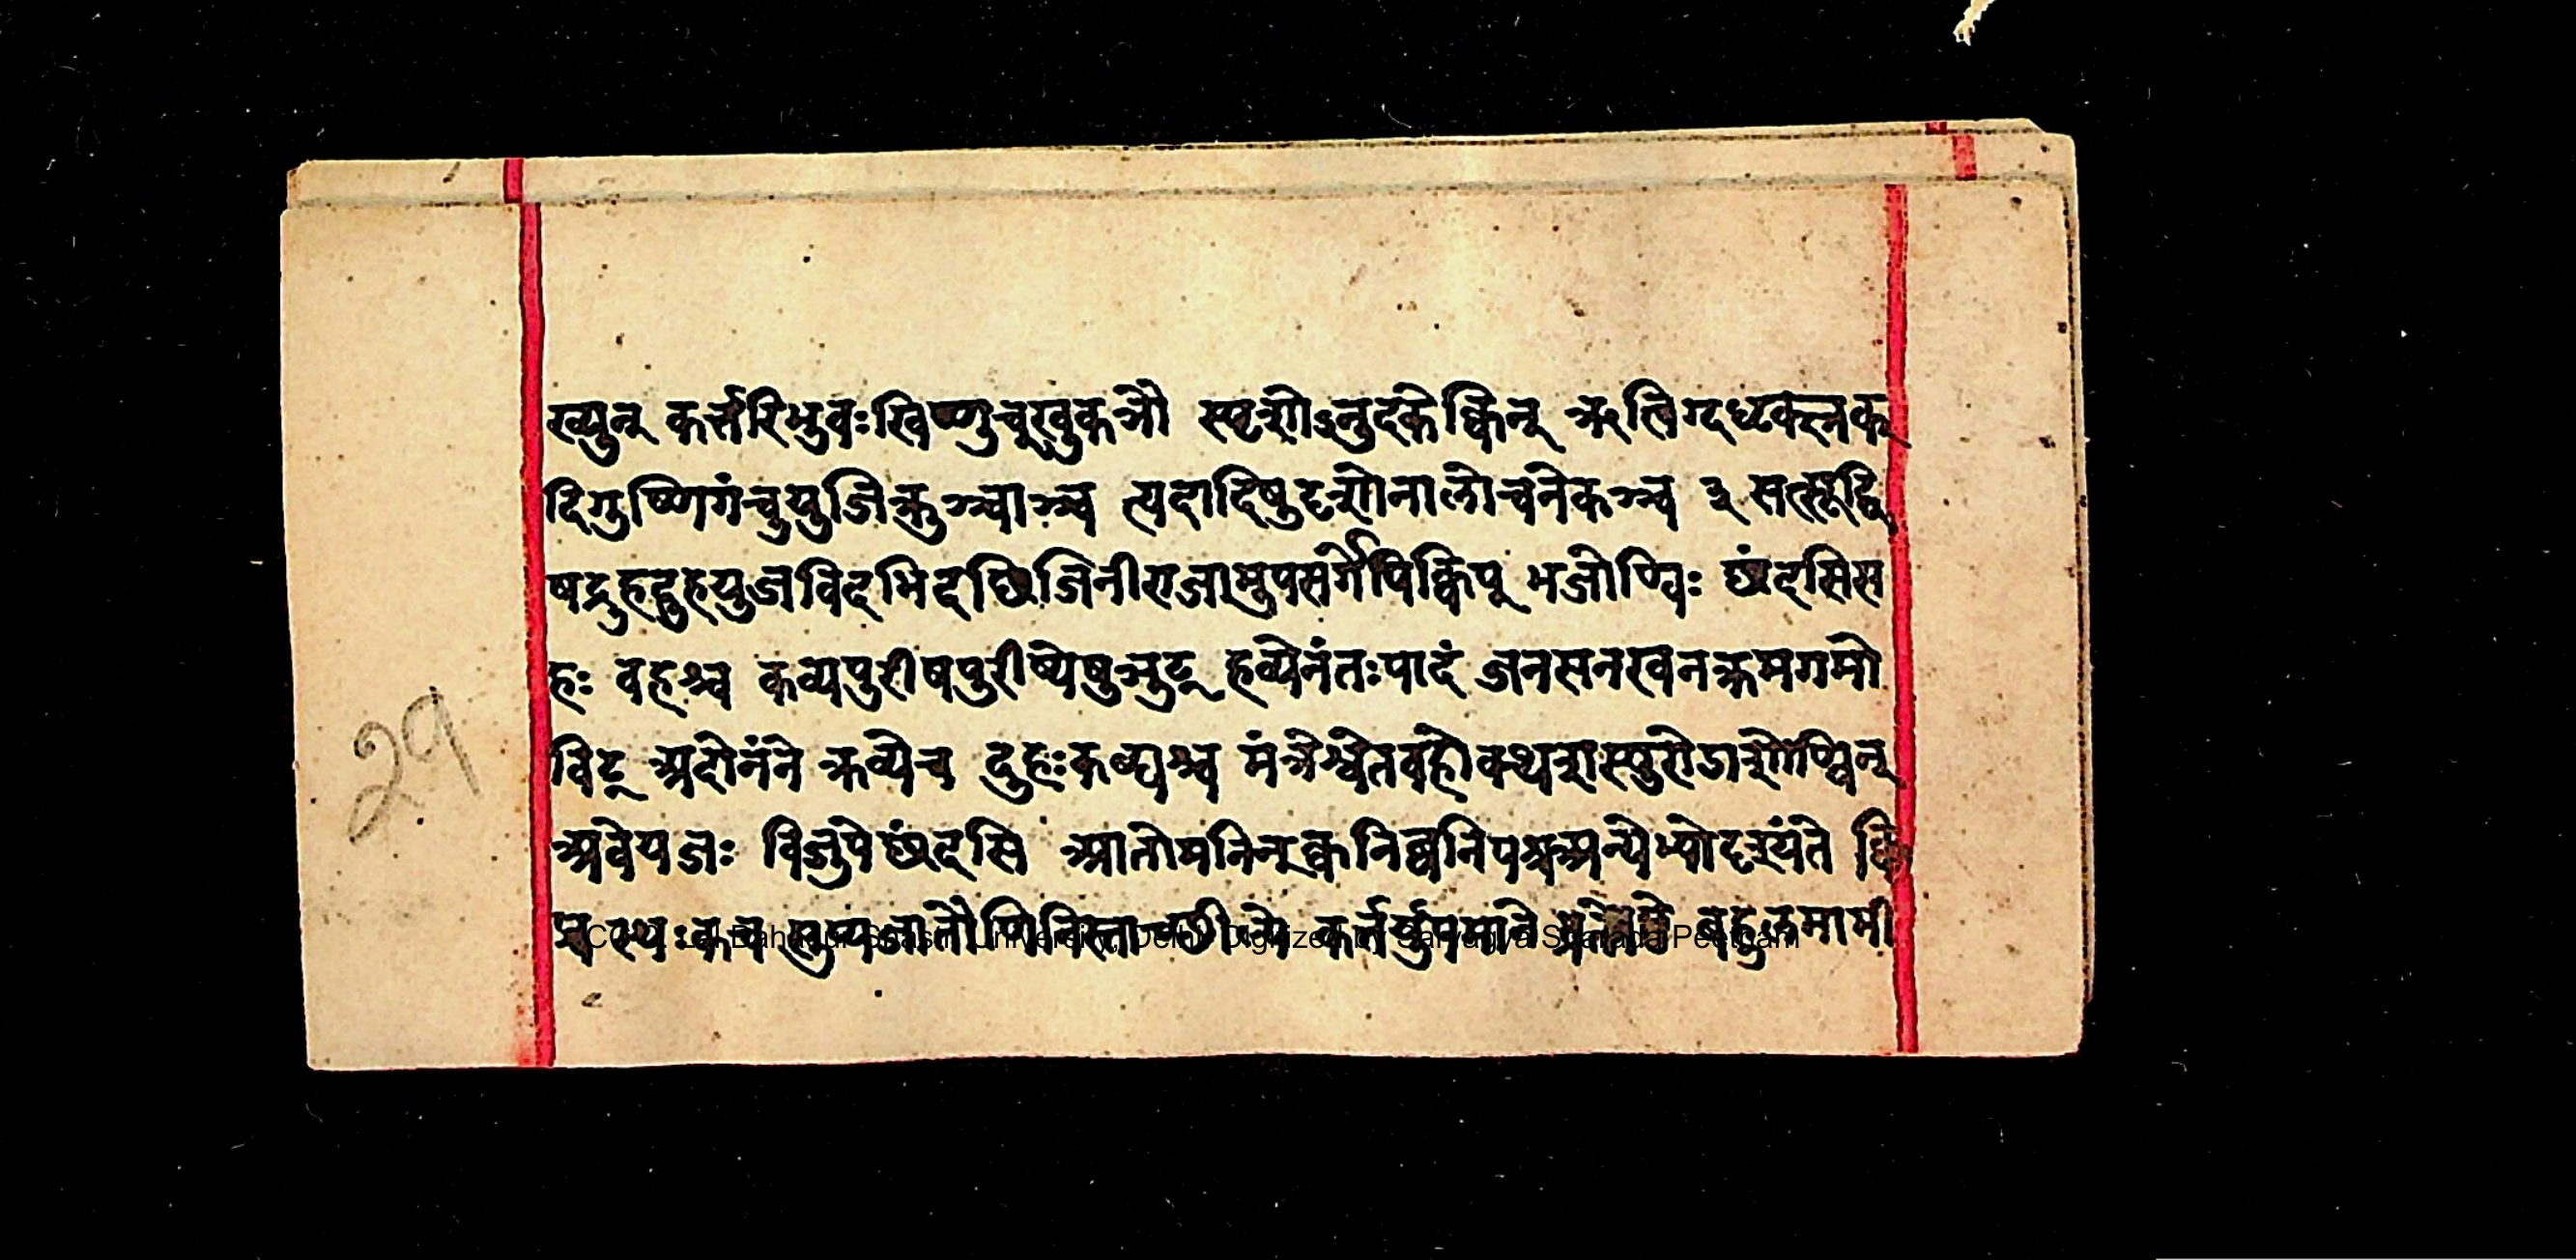 ख्युन् कर्त्तरिभुवःखिष्णुच्खुकञौ स्पृशोऽनुदकेक्विन् ऋत्विग्दधृक्स्रक्
दिगुष्णिगंचुयुजिक्रुञ्चाञ्च त्यदादिषुदृशोनालोचनेकञ्च ३ सत्सूद्वि
षद्रुहदुहयुजविदभिदछिजिनीराजामुपसर्गेपिक्विप् भजोण्विः छंदसिस
हः वहश्च कव्यपुरीषपुरीष्येषुञ्युट् हव्येनंतःपादं जनसनखनक्रमगमो
विट् अदोनंने क्रव्येच दुहःकब्घश्च मंत्रेश्वेतवहोक्थशस्पुरोडाशोण्विन्
अवेयजः विजुपेछंदसि आतोमनिन्क्वनिब्वनिपश्चअन्येभ्योदृश्यंते क्वि
प् स्थःकच सुप्यजातौणिनिस्ताच्छील्ये कर्तर्युपमाने व्रते बहुलमाभी
२१
CC-0. Lal Bahadur Shastri University, Delhi. Digitized by Sarvagya Sharada Peetham